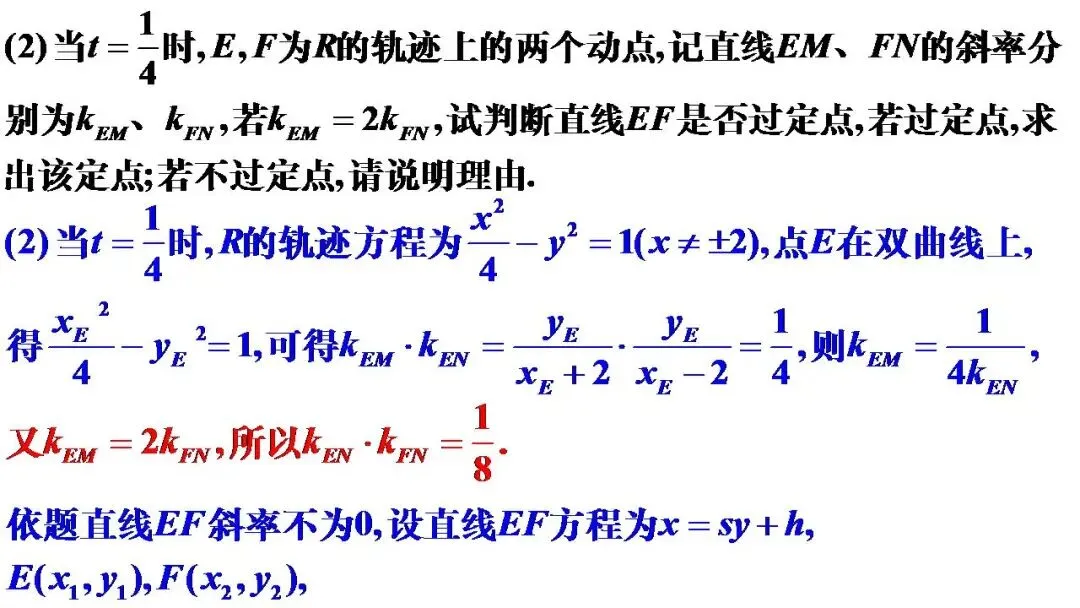 (2)当t=\frac{1}{4}时,E,F为R的轨迹上的两个动点,记直线EM、FN的斜率分
别为k_{EM}、k_{FN},若k_{EM}=2k_{FN},试判断直线EF是否过定点,若过定点,求
出该定点;若不过定点,请说明理由.
(2)当t=\frac{1}{4}时,R的轨迹方程为\frac{x^2}{4}-y^2=1(x≠±2),点E在双曲线上,
得\frac{x_E^2}{4}-y_E^2=1,可得k_{EM}·k_{EN}=\frac{y_E}{x_E+2}·\frac{y_E}{x_E-2}=\frac{1}{4},则k_{EM}=\frac{1}{4k_{EN}},
又k_{EM}=2k_{FN},所以k_{EN}·k_{FN}=\frac{1}{8}.
依题直线EF斜率不为0,设直线EF方程为x=sy+h,
E(x_1,y_1),F(x_2,y_2),